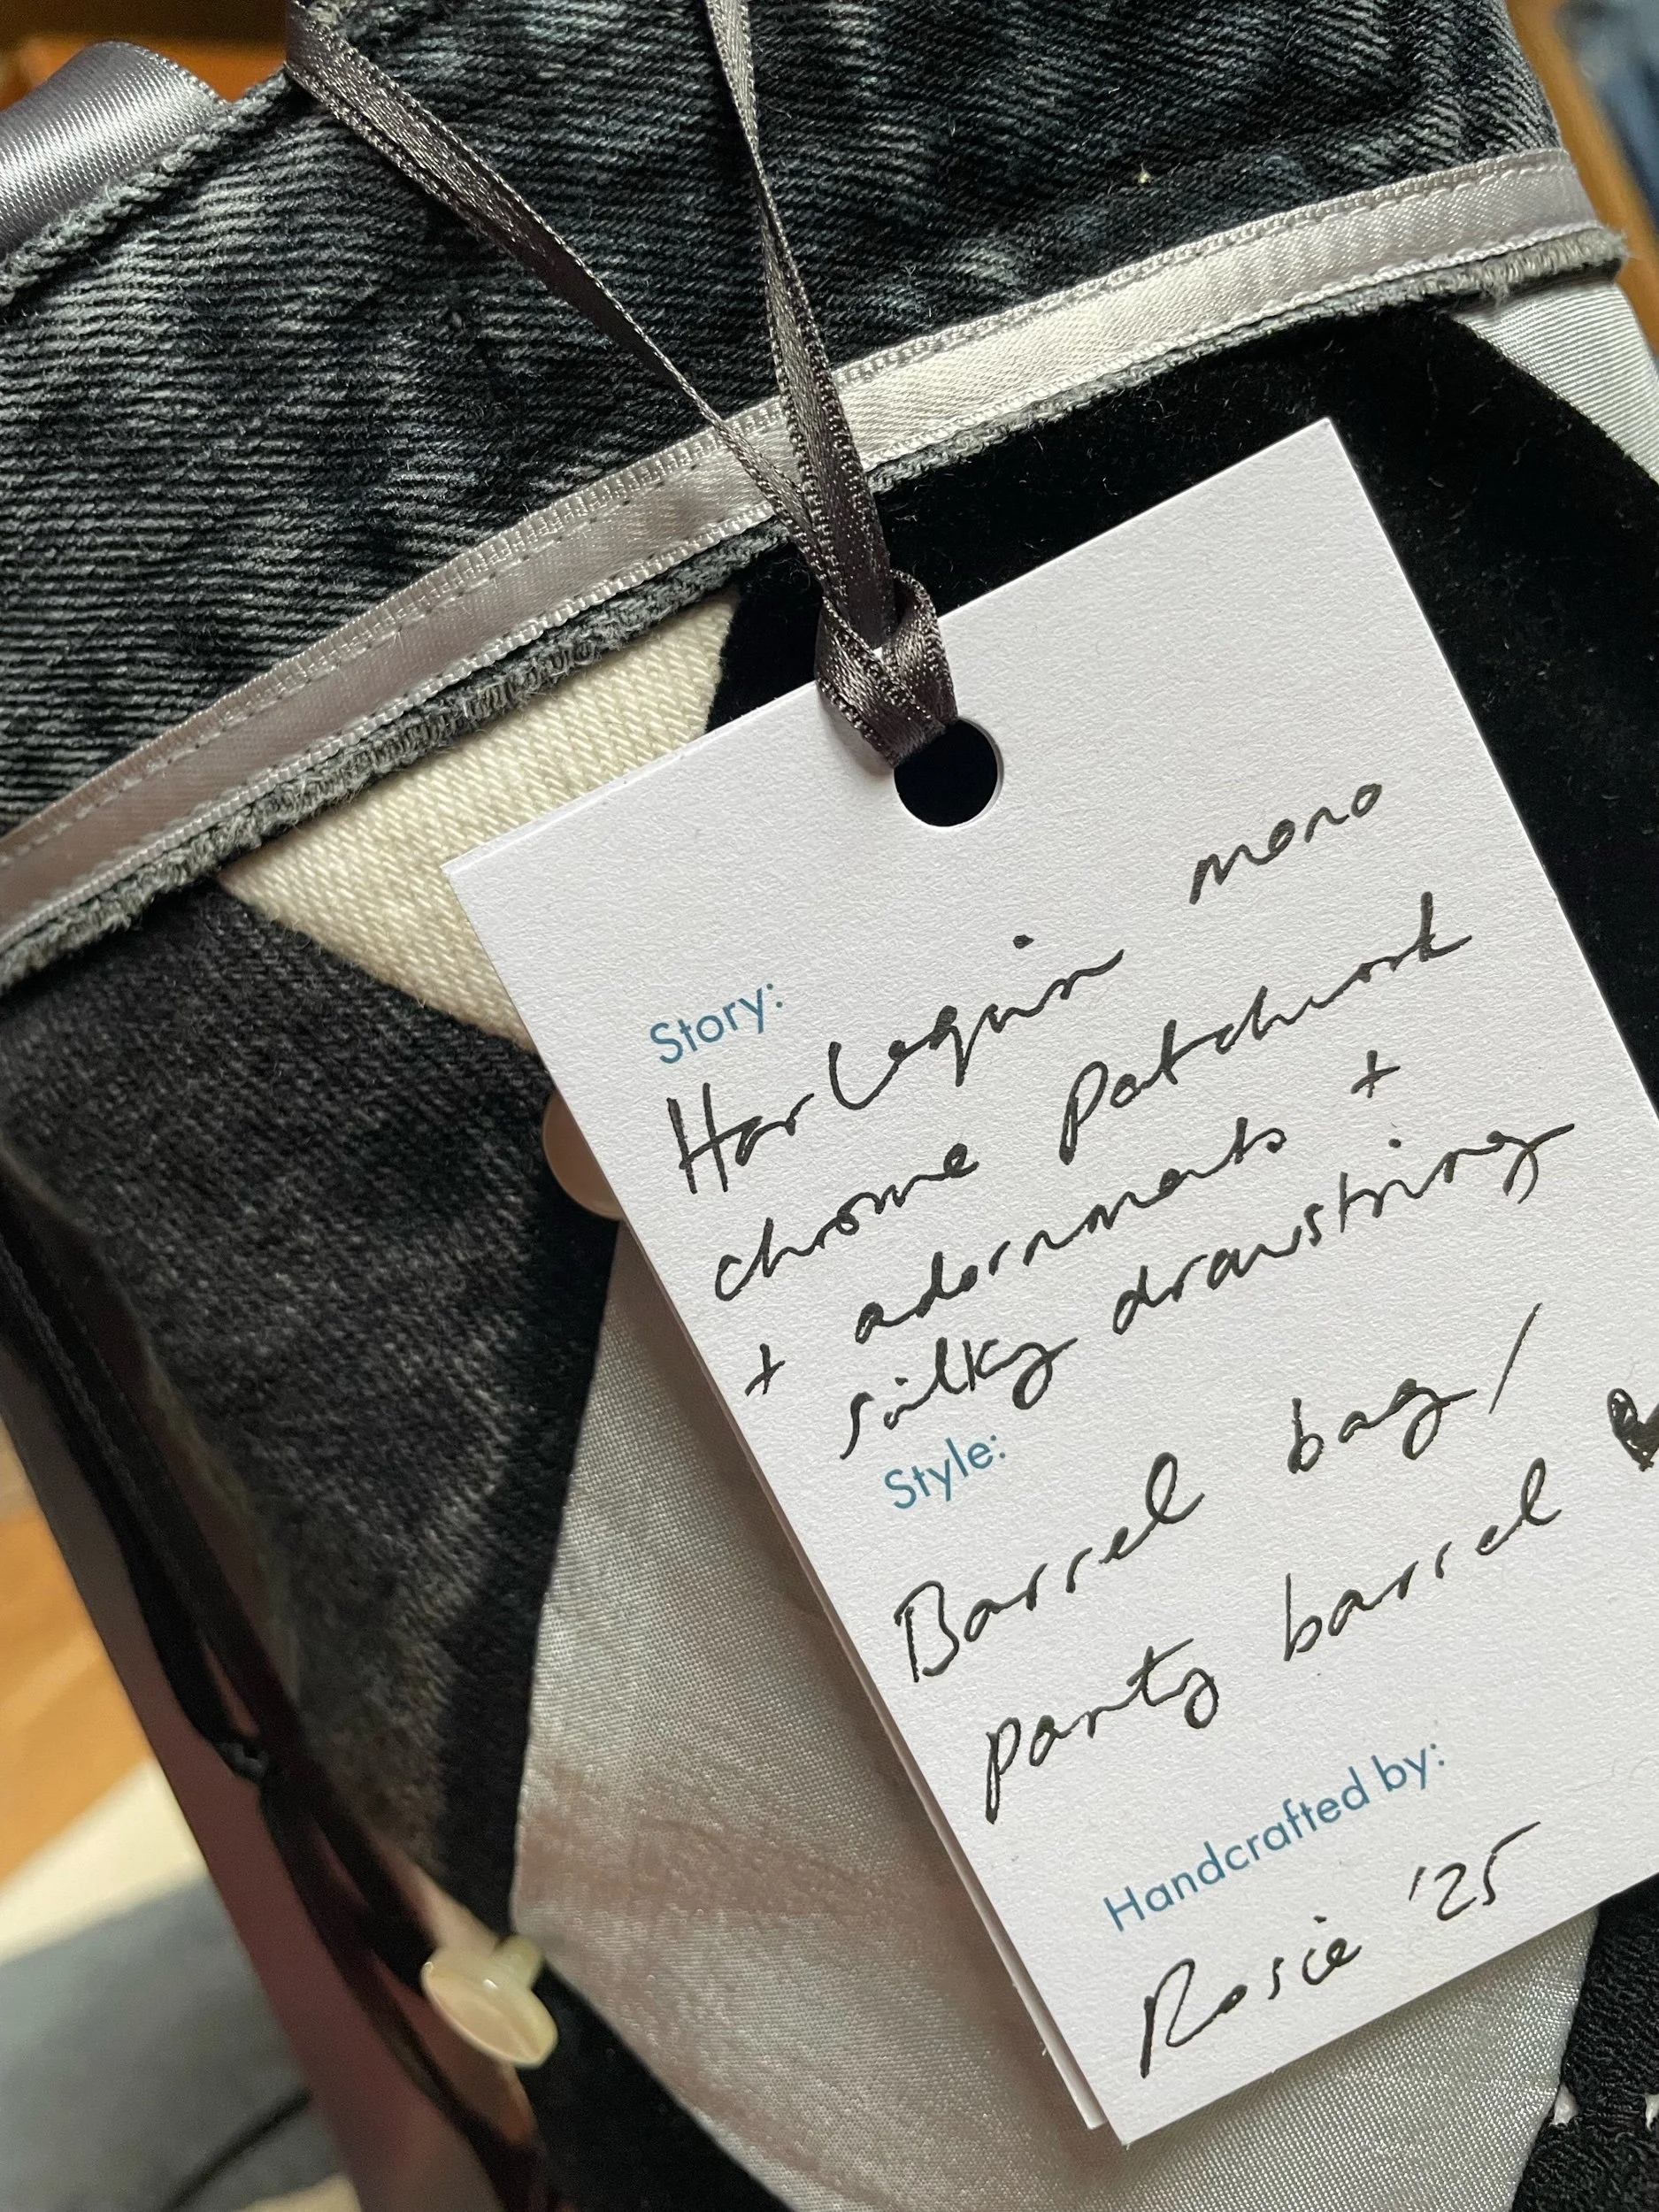 Story:
Harlequin mono
chrome patchwork
+ adornments +
silky drawstring
Style:
Barrel bag/
party barrel ♥
Handcrafted by:
Rosie '25